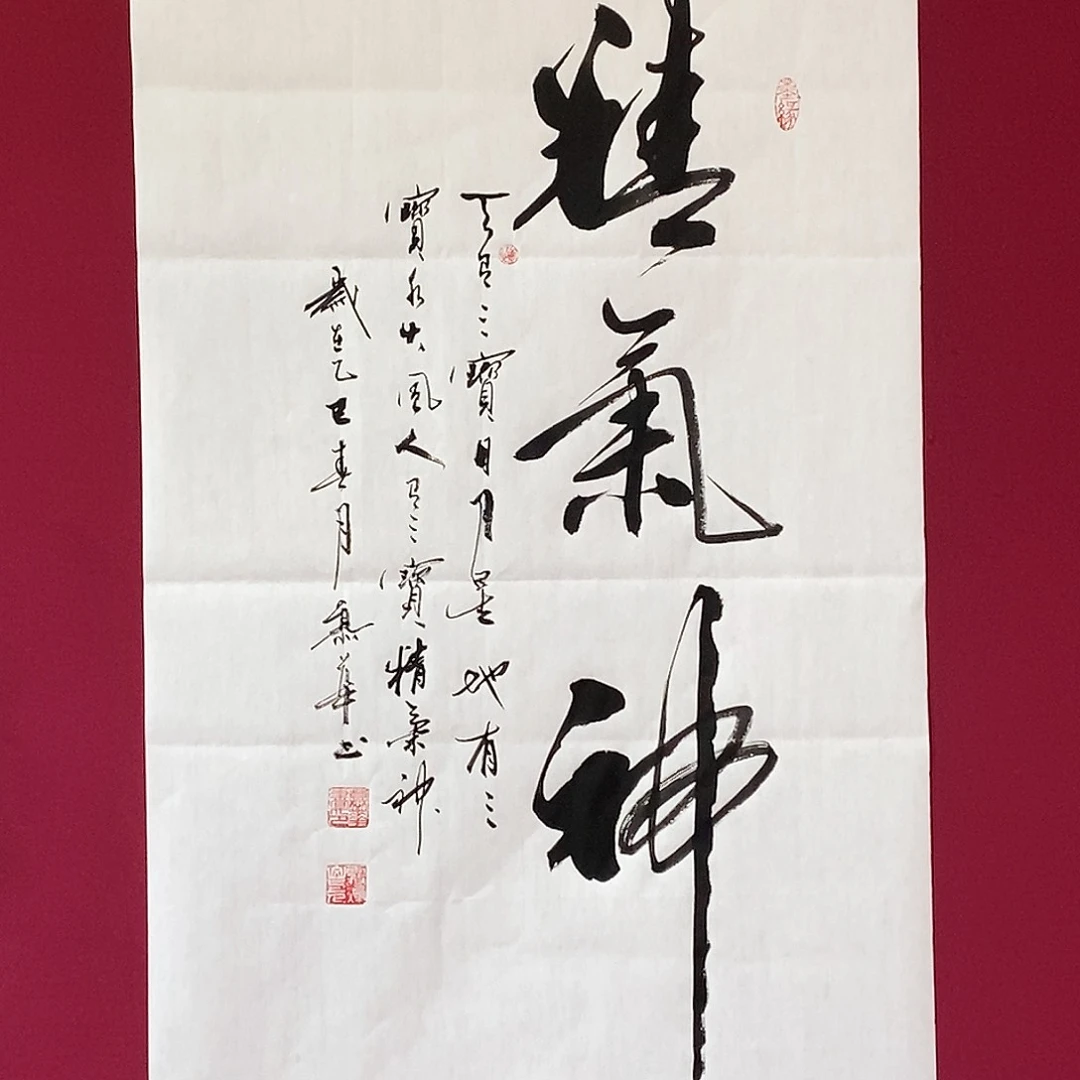 精氣神
天有三寶日月星地有三
寶水火風人有三寶精氣神
歲在乙巳春月華书